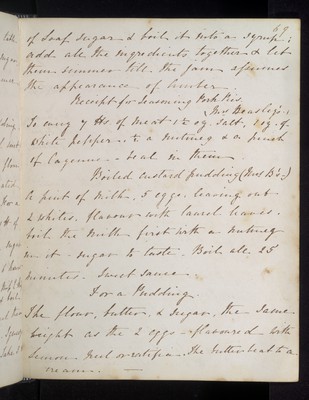 69
of Loaf Sugar & boil it into a syrup,
add all the ingredients together & let
them simmer till the Jam assumes
the appearance of
Receipt for Seasoning Pork Pies
Mrs
To every 7 lbs of meat 1½ oz Salt,
white pepper a nutmeg & a pinch
of Cayenne in them
Boiled custard pudding (Mrs B's)
A pint of Milk, 5 eggs, leaving out
2 whites, flavour with laurel leaves.
boil the Milk first with a nutmeg
in it sugar to taste. Boil all 25
minutes. Sweet sauce
For a Pudding.
The flour, butter, & sugar, the same
weight as the 2 eggs flavoured with
Lemon Peel or ratifia. The butter beat to a
cream.